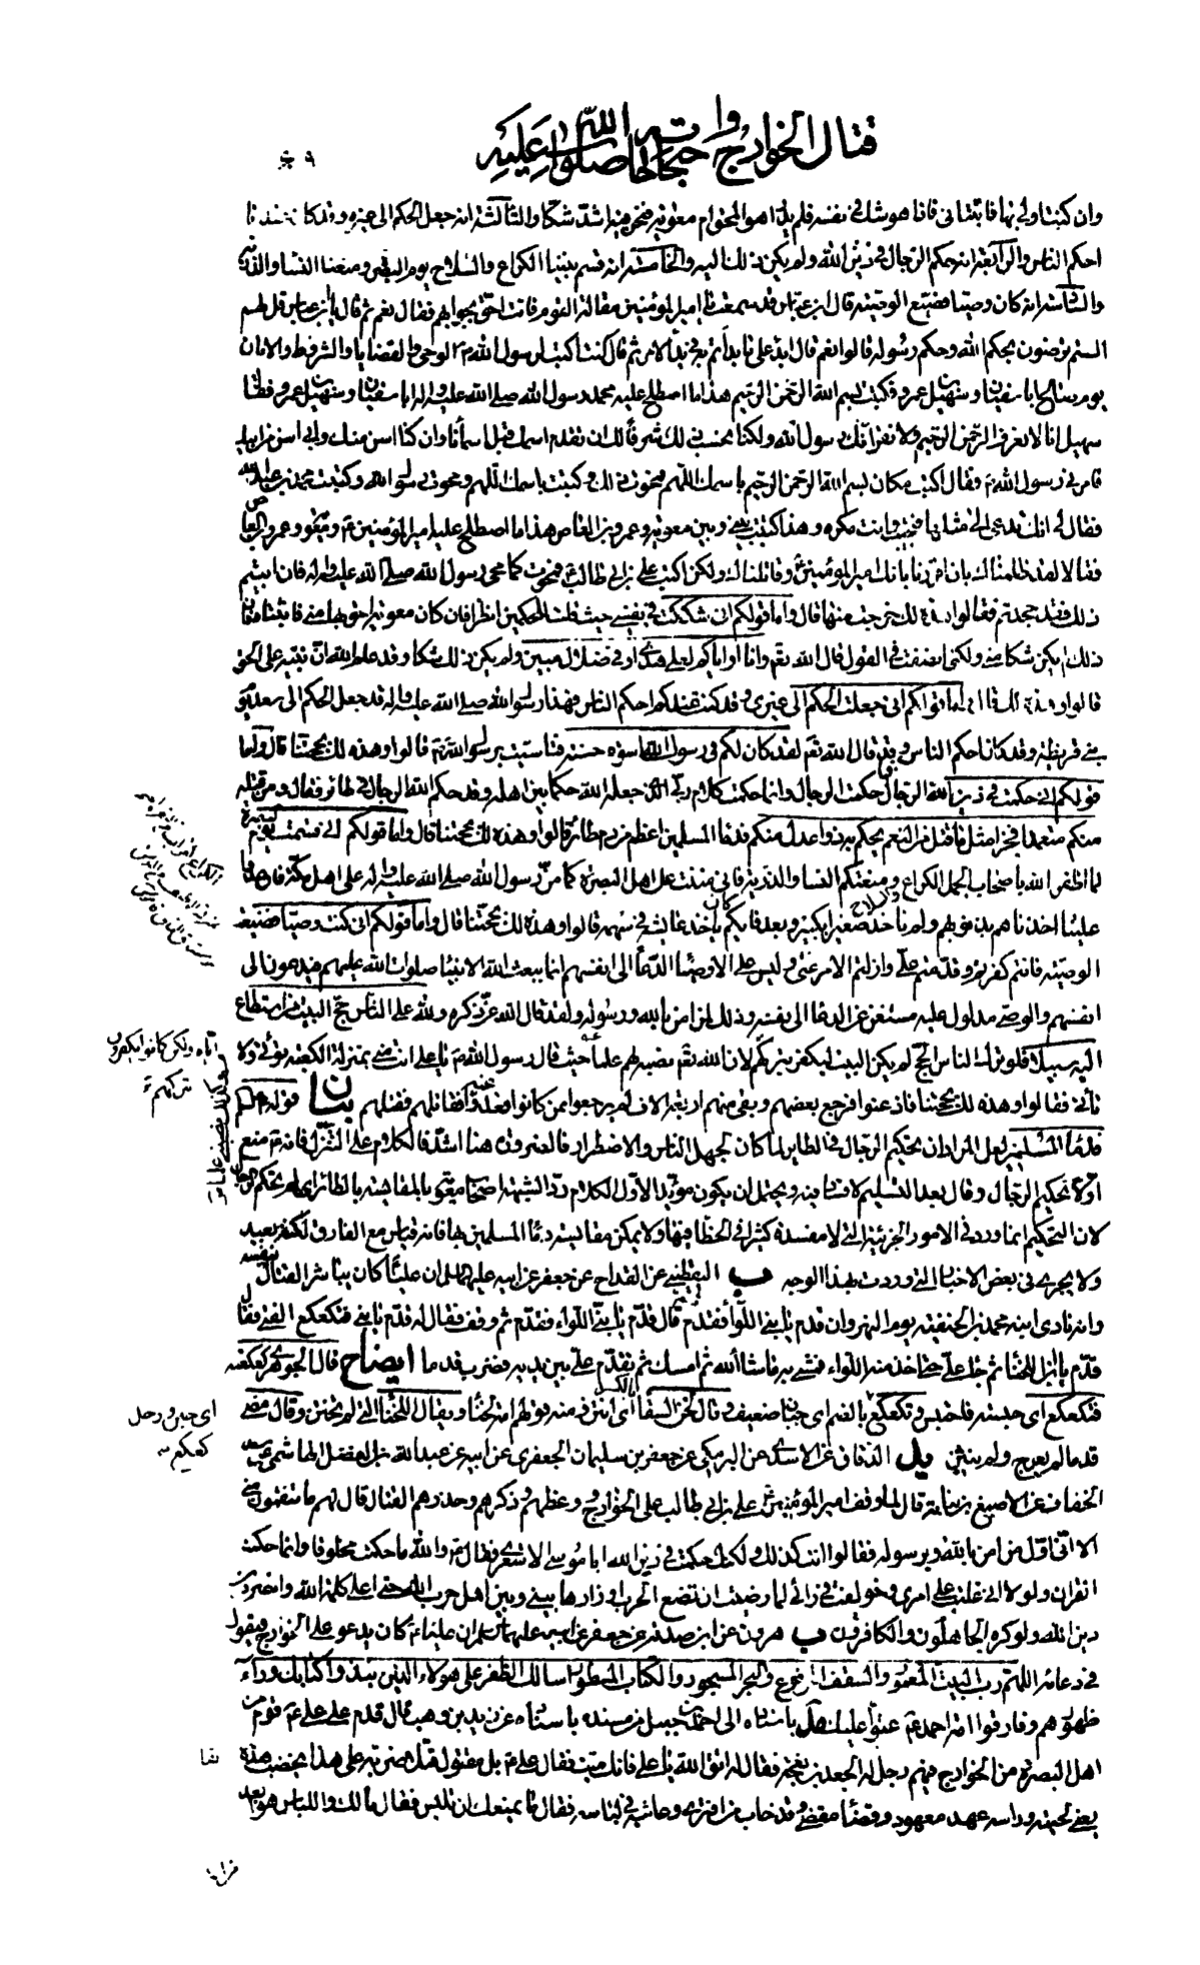 قتال الخوارج واحتجاجاته صلوات الله عليه
٦٠٩
وان كنت اولى بها فاثبتاني فاذا هو شك في نفسه فلم يدر أهو المحق ام معوية فنحن فيه اشد شكا والثالثة انه جعل الحكم الى غيره وقد كان عندنا
احكم الناس والرابعة انه حكم الرجال في دين الله ولم يكن ذلك اليه والخامسة انه قسم بيننا الكراع والسلاح يوم البصرة ومنعنا النساء والذرية
والسادسة انه كان وصيا فضيع الوصية قال ابن عباس قد سمعت يا امير المؤمنين مقالة القوم فانت احق بجوابهم فقال نعم ثم قال يا ابن عباس قل لهم
الستم ترضون بحكم الله وحكم رسوله قالوا نعم قال ابدء على ما بدأتم به في بدأ الامر ثم قال كنت اكتب لرسول الله ص الوحي والقضايا والشروط والامان
يوم صالح ابا سفيان وسهيل بن عمرو فكتبت بسم الله الرحمن الرحيم هذا ما اصطلح عليه محمد رسول الله صلى الله عليه واله ابا سفيان وسهيل بن عمرو فقال
سهيل انا لا نعرف الرحمن الرحيم ولا نقر انك رسول الله ولكنا نحسب ذلك شرفا لك ان تقدم اسمك قبل اسمائنا وان كنا اسن منك وابي اسن من ابيك
فامرني رسول الله ص فقال اكتب مكان بسم الله الرحمن الرحيم باسمك اللهم فمحوت ذلك وكتبت باسمك اللهم ومحوت رسول الله وكتبت محمد بن عبد الله
فقال لي انك تدعى الى مثلها فتجيب وانت مكره وهذا كتبت بيني وبين معوية وعمرو بن العاص هذا ما اصطلح عليه امير المؤمنين ومعوية وعمرو بن العاص
فقالا لقد ظلمناك بان اقررنا بانك امير المؤمنين وقاتلناك ولكن اكتب علي بن ابي طالب فمحوت كما محى رسول الله صلى الله عليه واله فان ابيتم
ذلك فقد جحدتم فقالوا هذه لك خرجت منها قال واما قولكم اني شككت في نفسي حيث قلت للحكمين انظرا فان كان معوية احق بها مني فاثبتاه فان
ذلك لم يكن شكا مني ولكني انصفت في القول قال الله تعالى وانا او اياكم لعلى هدى او في ضلال مبين ولم يكن ذلك شكا وقد علم الله ان نبيه على الحق
قالوا وهذه لك قال واما قولكم اني جعلت الحكم الى غيري وقد كنت عندكم احكم الناس فهذا رسول الله صلى الله عليه واله قد جعل الحكم الى سعد يوم
بني قريظة وقد كان احكم الناس وقد قال الله تعالى لقد كان لكم في رسول الله اسوة حسنة فتأسيت برسول الله ص قالوا وهذه لك بحجتنا قال واما
قولكم اني حكمت في دين الله الرجال فما حكمت الرجال وانما حكمت كلام ربي الذي جعله الله حكما بين اهله وقد حكم الله الرجال في طائر فقال ومن قتله
منكم متعمدا فجزاء مثل ما قتل من النعم يحكم به ذوا عدل منكم فدماء المسلمين اعظم من دم طائر قالوا وهذه لك بحجتنا قال واما قولكم اني قسمت يوم البصرة
لما اظفرني الله باصحاب الجمل الكراع والسلاح ومنعتكم النساء والذرية فاني مننت على اهل البصرة كما من رسول الله صلى الله عليه واله على اهل مكة فان عدوا
علينا اخذناهم بذنوبهم ولم ناخذ صغيرا بكبير وبعد فايكم كان ياخذ عايشة في سهمه قالوا وهذه لك بحجتنا قال واما قولكم اني كنت وصيا فضيعت
الوصية فانتم كفرتم وقدمتم علي وازلتم الامر عني وليس على الاوصياء الدعاء الى انفسهم انما يبعث الله الانبياء صلوات الله عليهم فيدعون الى
انفسهم والوصي مدلول عليه مستغن عن الدعاء الى نفسه وذلك لمن امن بالله ورسوله ولقد قال الله عز ذكره ولله على الناس حج البيت من استطاع
اليه سبيلا فلو ترك الناس الحج لم يكن البيت ليكفر بتركهم لان الله تعالى نصبه لهم علما حيث قال رسول الله ص يا علي انت مني بمنزلة الكعبة تؤتى ولا
تأتي فقالوا وهذه لك بحجتنا فاذعنوا فرجع بعضهم وبقي منهم اربعة الاف لم يرجعوا ممن كانوا قعدوا عنه فقاتلهم فقتلهم بيان قوله ع
فدماء المسلمين لعل المراد ان تحكيم الرجال في الطاير لما كان لجهل الناس والاضطرار فالضرورة هنا اشد فالكلام على التنزل فانه ع منع
اولا تحكيم الرجال وقال بعد التسليم لا فساد فيه ويحتمل ان يكون مؤيدا لاول الكلام
لان التحكيم انما ورد في الامور الجزئية التي لا مفسدة كثيرا في الخطأ فيها ولا يمكن مقايسة دماء المسلمين بها فانه قياس مع الفارق لكنه بعيد
ولا يجري في بعض الاخبار التي وردت بهذا الوجه ب اليقطيني عن القداح عن جعفر عن ابيه عليهما السلام ان عليا كان يباشر القتال بنفسه
وانه نادى ابنه محمد بن الحنفية يوم النهروان قدم يا بني اللواء فقدم ثم قال قدم يا بني اللواء فقدم ثم وقف فقال له قدم يا بني فتكعكع الفتى فقال
قدم يا ابن اللخناء ثم جاء علي حتى اخذ منه اللواء فمشى به ما شاء الله ثم امسك ثم تقدم علي بين يديه فضرب قدما ايضاح قال الجوهري كعكعته
فتكعكع اي حبسته فاحتبس وتكعكع اي جبان ضعيف وقال لخن السقاء بالكسر اي انتن ومنه قولهم امة لخناء ويقال اللخناء التي لم تختن وقال مضى
قدما لم يعرج ولم ينثن يل الدقاق عن الاسدي عن البرمكي عن جعفر بن سليمان الجعفري عن ابيه عن عبد الله بن الفضل الهاشمي عن سعد
الخفاف عن الاصبغ بن نباتة قال لما وقف امير المؤمنين علي بن ابي طالب على الخوارج ووعظهم وذكرهم وحذرهم القتال قال لهم ما تنقمون مني
الا اني اول من امن بالله وبرسوله فقالوا انت كذلك ولكنك حكمت في دين الله ابا موسى الاشعري فقال ع والله ما حكمت مخلوقا وانما حكمت
القران ولولا اني غلبت على امري وخولفت في رائي لما رضيت ان تضع الحرب اوزارها بيني وبين اهل حرب الله حتى اعلي كلمة الله وانصر
دين الله ولو كره الجاهلون والكافرون ب هرون عن ابن صدقة عن جعفر عن ابيه عليهما السلام ان عليا ع كان يدعو على الخوارج فيقول
في دعائه اللهم رب البيت المعمور والسقف المرفوع والبحر المسجور والكتاب المسطور اسالك الظفر على هؤلاء الذين نبذوا كتابك وراء
ظهورهم وفارقوا امة احمد ع عتوا عليك باسناده الى احمد بن حنبل من مسنده باسناده عن زيد بن وهب قال قدم علي على ع قوم من
اهل البصرة من الخوارج فيهم رجل له الجعد بن بعجة فقال له اتق الله يا علي فانك ميت فقال علي ع بل مقتول قتلا ضربة على هذا يخضب هذه
يعني لحيته وراسه عهد معهود وقضاء مقضي وقد خاب من افترى وعاتبه في لباسه فقال ما يمنعك ان تلبس فقال مالك واللباس هو ابعد
اياه ولكن كانوا يكفرون
بتركهم
اي جبن ورجل
كعكع